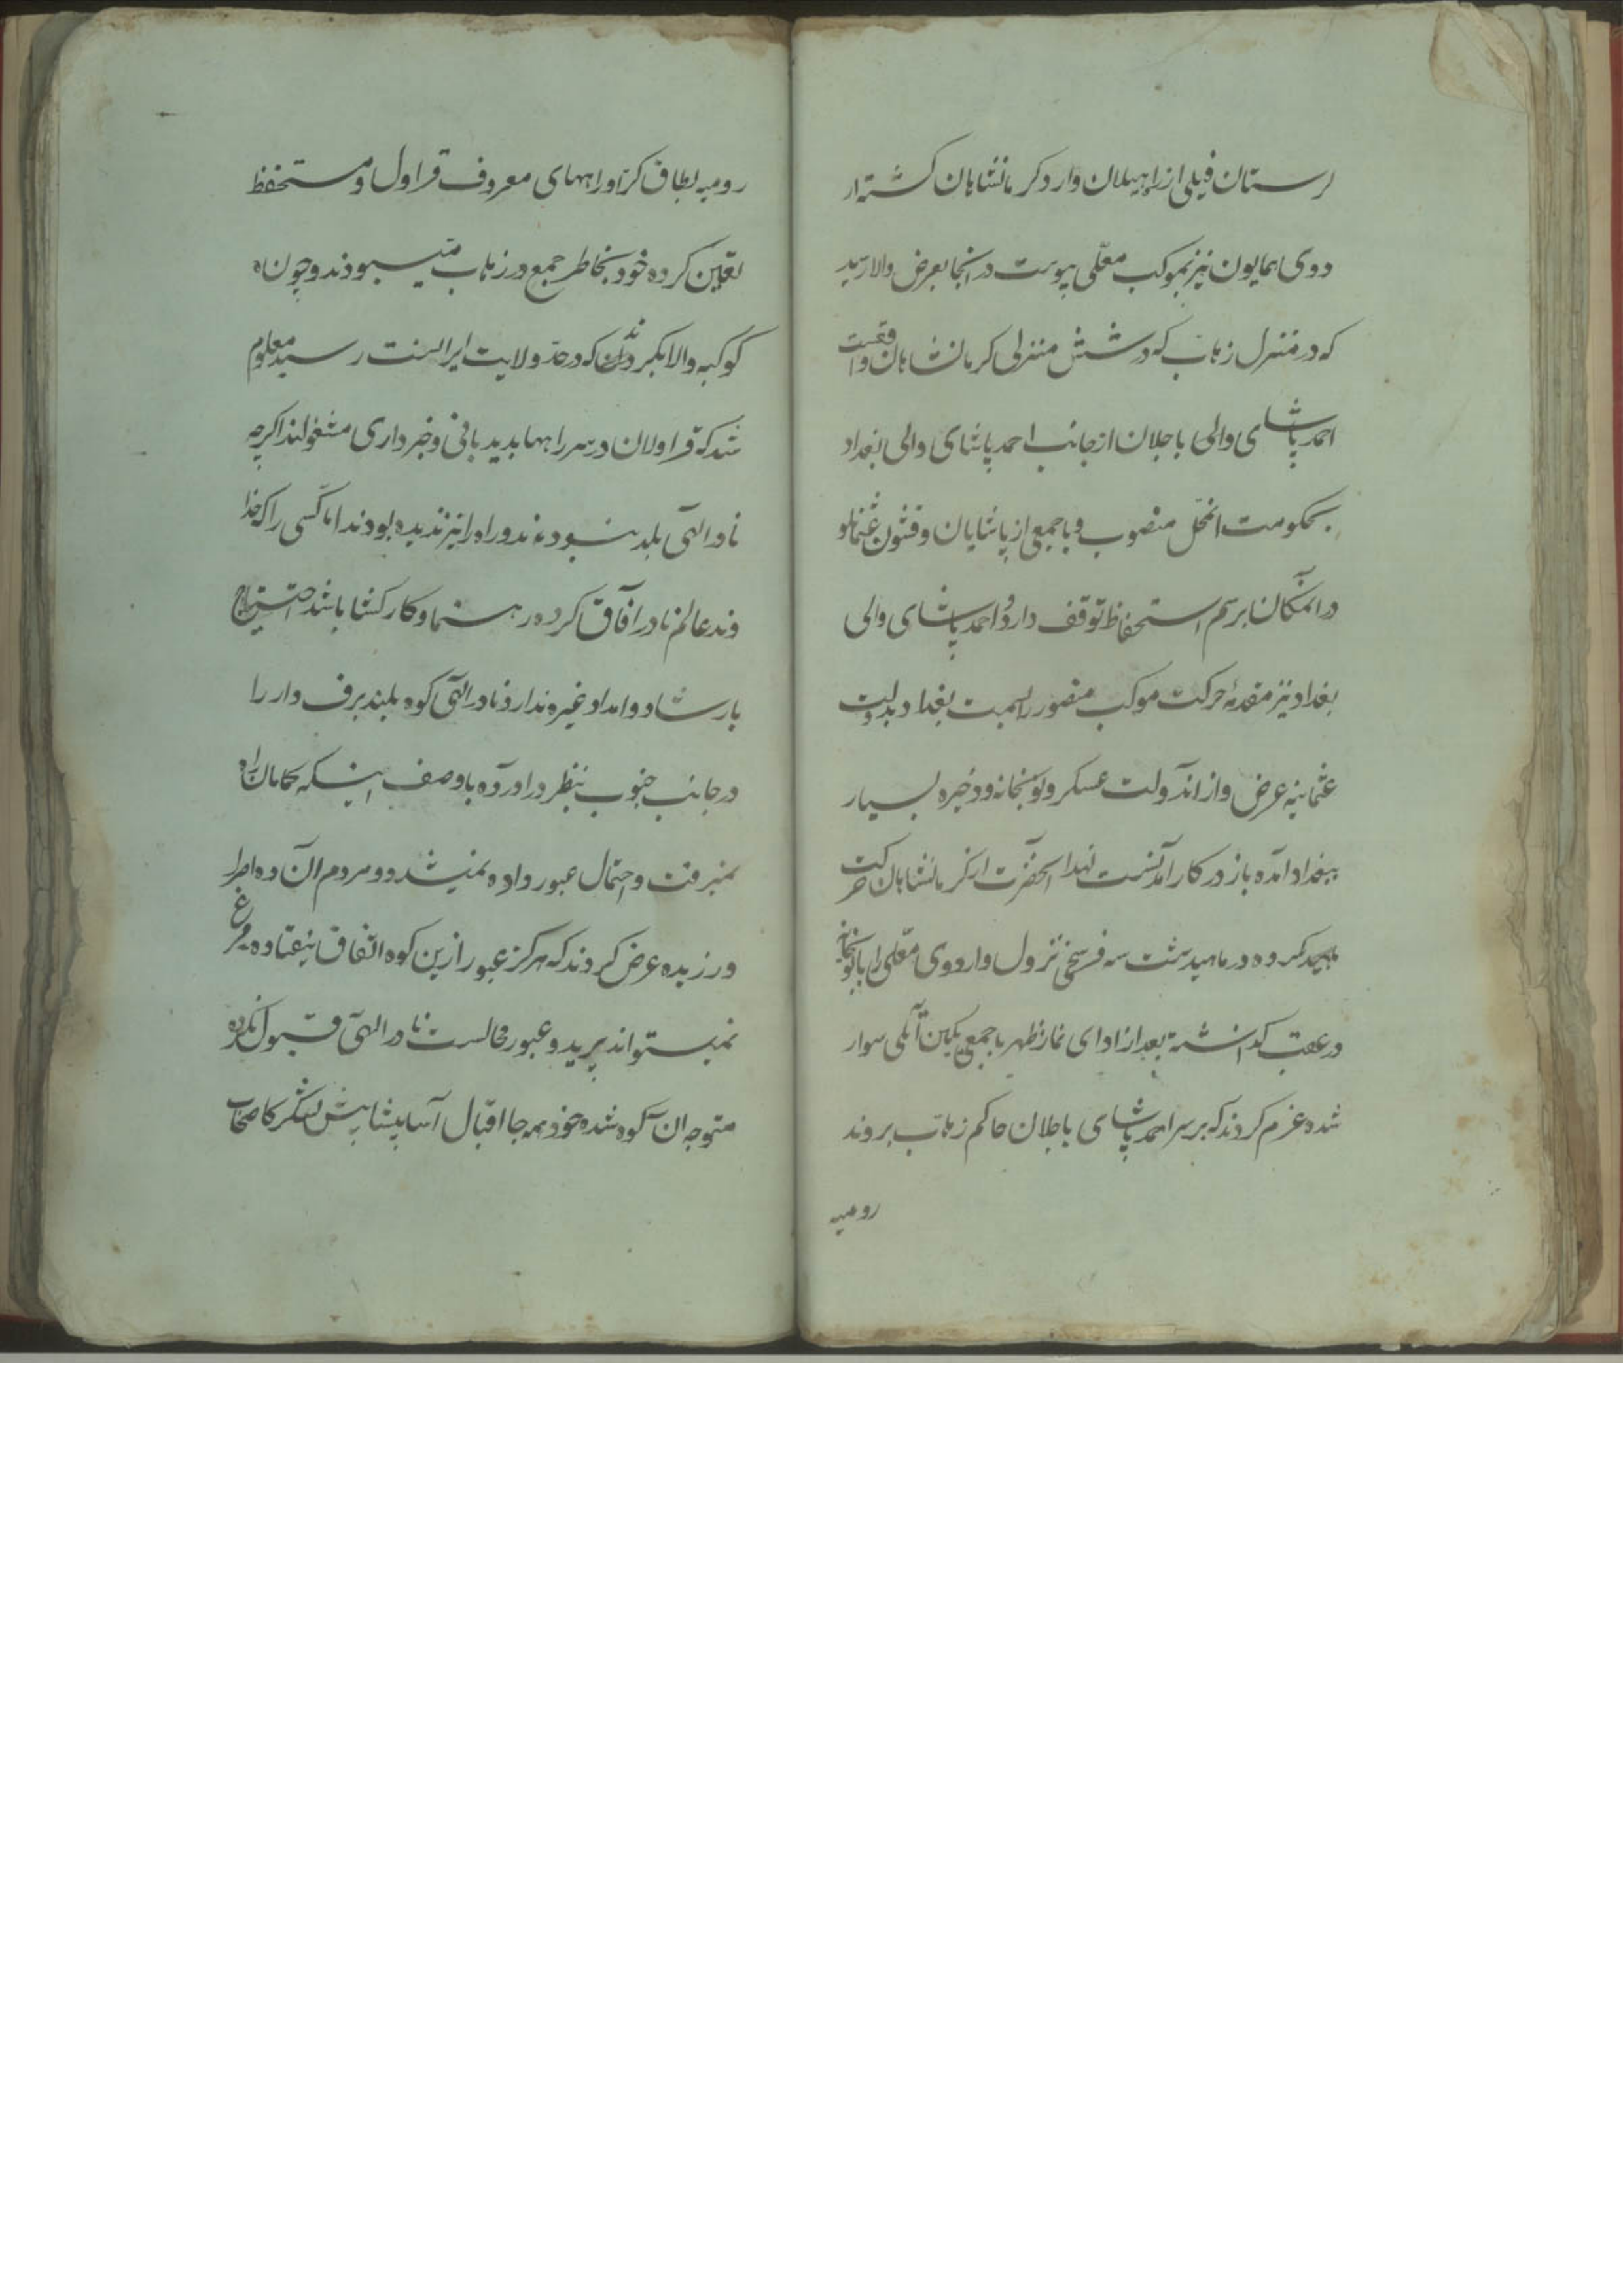 لرستان فیلی از راه هیلان وارد کرمانشاهان کشته ار
دوی همایون نیز بموکب معلی پیوست در انجا بعرض والا رسید
که در منزل زهاب که در شش منزلی کرمانشاهان واقعست
احمد پاشای والی باجلان از جانب احمد پاشای والی بغداد
بحکومت انمحل منصوب و با جمعی از پاشایان و قشون عثمانلو
در انمکان برسم استحفاظ توقف دارد و احمد پاشای والی
بغداد نیز مقدمهٔ حرکت موکب منصور را بسمت بغداد بدولت
عثمانیه عرض و از اندولت عسکر و توپخانه و ذخیره بسیار
ببغداد آمده باز در کار آمدنست لهذا آنحضرت از کرمانشاهان حرکت
کرده در ماهیدشت سه فرسخی نزول و اردوی معلی را با توپخانه
در عقب کذاشته بعد از ادای نماز ظهر با جمعی یکین آنلی سوار
شده عزم کردند که بر سر احمد پاشای باجلان حاکم زهاب بروند
رومیه
رومیه بطاق کرا و راههای معروف قراول و مستحفظ
تعیین کرده خود بخاطر جمع در زهاب میبودند و چون ماه
کوکبه والا بکرند که در حد ولایت ایرانست رسید معلوم
شد که قراولان در سر راهها بدیدبانی و خبرداری مشغولند اکرچه
نادر الهی بلد نبودند و راه را نیز ندیده بودند اما کسی را که خدا
وند عالم نادر آفاق کرده رهنما و کارکشا باشد احتیاج
بارشاد و امداد غیر ندارد نادر الهی کوه بلند برف دار را
در جانب جنوب بنظر در اورده با وصف اینکه کمان راه
نمیرفت و احتمال عبور داده نمیشد و مردم آن ده اصرا
ر ورزیده عرض کردند که هرکز عبور ازین کوه اتفاق نیفتاده مرغ
نمیتواند پرید و عبور محالست نادر الهی قبول نکرده
متوجه ان کوه شده خود همه جا اقبال آسا پیشاپیش لشکر